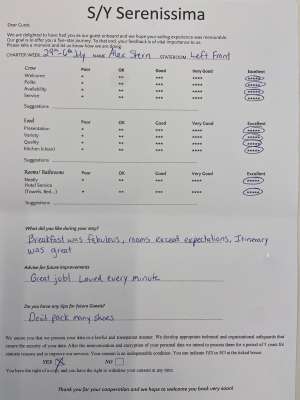 S/Y Serenissima
Dear Guest,
We are delighted to have had you as our guest onboard and we hope your sailing experience was memorable.
Our goal is to offer you a five-star journey. To that end, your feedback is of vital importance to us.
Please take a moment and let us know how we are doing
CHARTER WEEK 29th-6th July NAME Alex Stern STATEROOM Left Front
Crew Poor OK Good Very Good Excellent
Welcome * ** *** **** *****
Polite * ** *** **** *****
Availability * ** *** **** *****
Service * ** *** **** *****
Suggestions
Food Poor OK Good Very Good Excellent
Presentation * ** *** **** *****
Variety * ** *** **** *****
Quality * ** *** **** *****
Kitchen (clean) * ** *** **** *****
Suggestions
Rooms/ Bathrooms Poor OK Good Very Good Excellent
Neatly * ** *** **** *****
Hotel Service
(Towels, Bed...) * ** *** **** *****
Suggestions
What did you like during your stay?
Breakfast was fabulous, rooms exceed expectations, Itinerary
was great
Advise for future improvements
Great job! Loved every minute
Do you have any tips for future Guests?
Dont pack many shoes
We assure you that we process your data in a lawful and transparent manner. We develop appropriate technical and organizational safeguards that
ensure the security of your data. After the anonymization and encryption of your personal data we intend to process them for a period of 5 years for
statistic reasons and to improve our services. Your consent is an indispensable condition. You can indicate YES or NO at the ticked boxes:
YES X NO
You have the right of access and you have the right to withdraw your consent at any time.
Thank you for your cooperation and we hope to welcome you back very soon!